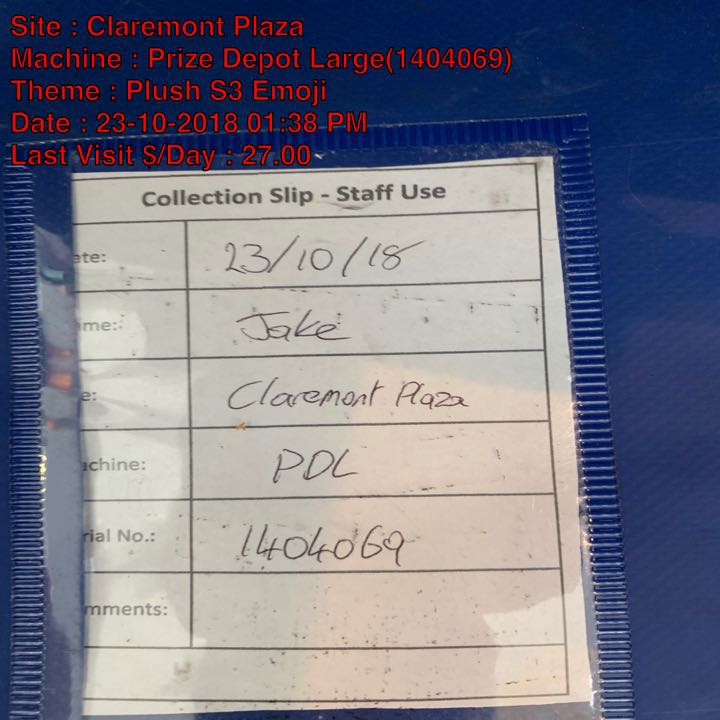 Site : Claremont Plaza
Machine : Prize Depot Large(1404069)
Theme : Plush S3 Emoji
Date : 23-10-2018 01:38 PM
Last Visit $/Day : 27.00
Collection Slip - Staff Use
ate: 23/10/18
me: Jake
e: Claremont Plaza
achine: PDL
rial No.: 1404069
mments: